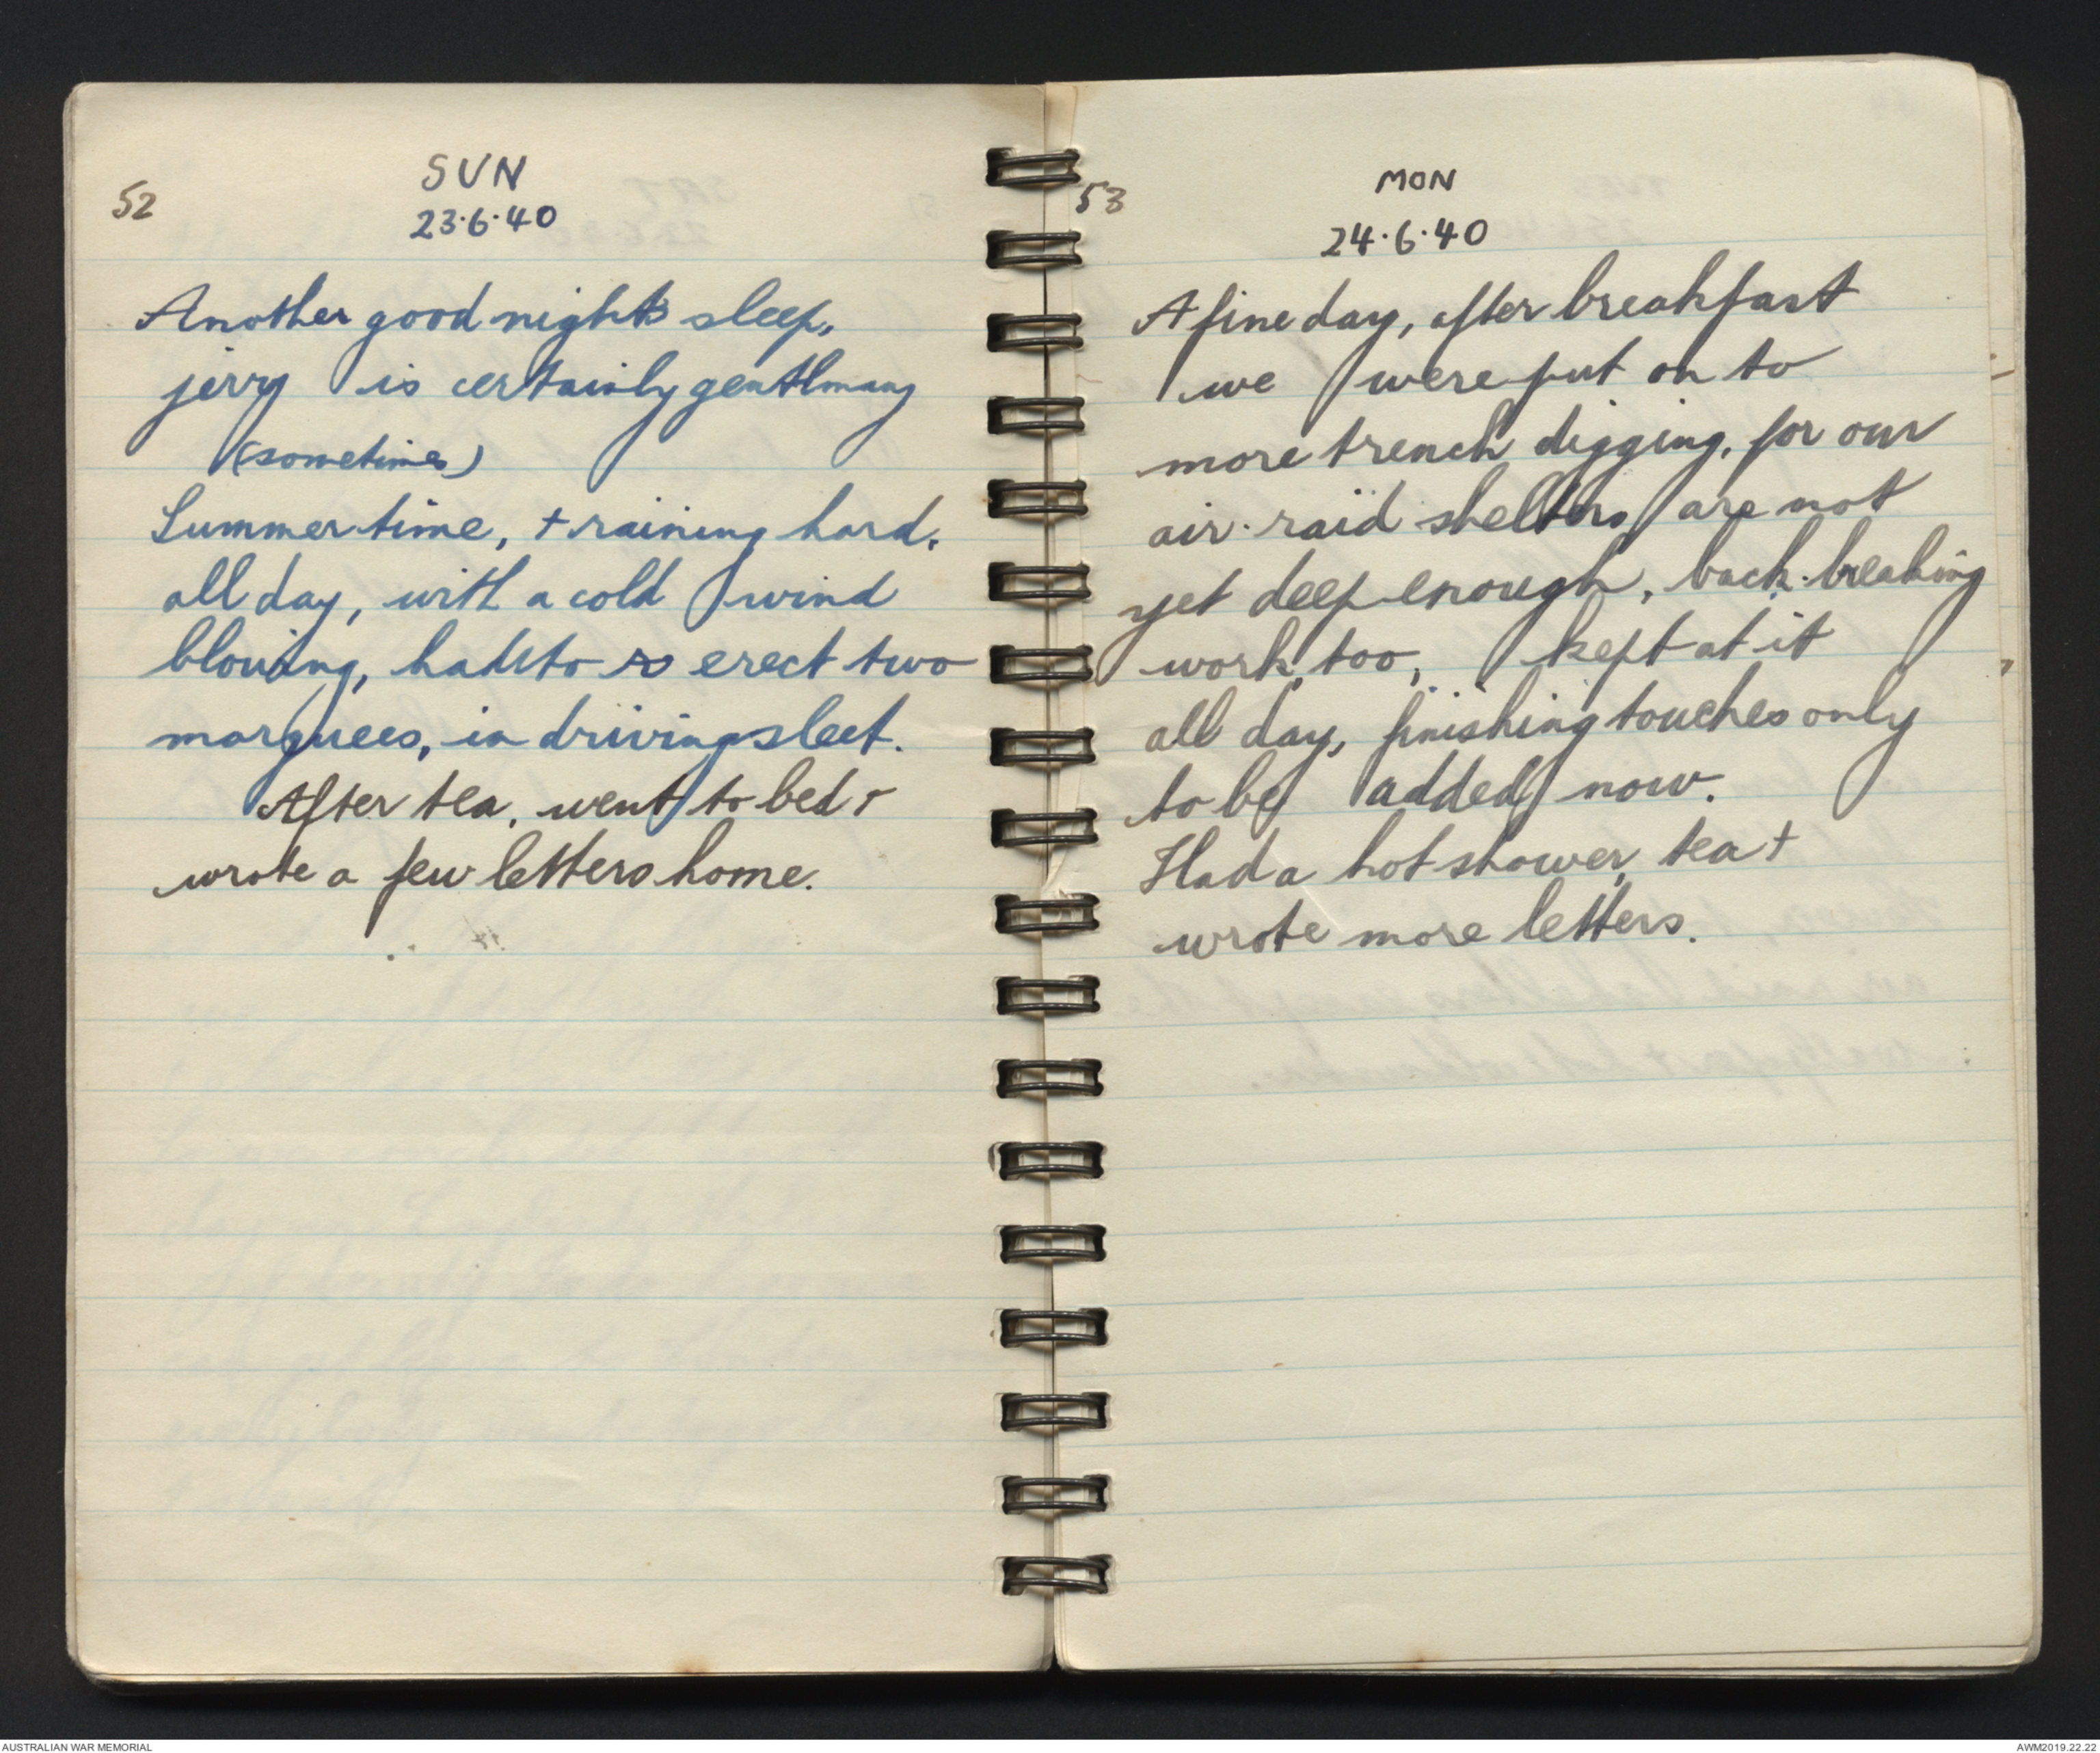 52
SUN
23.6.40
Another good nights sleep,
jerry is certainly gentlmany
(sometimes)
Summer time, + raining hard.
all day, with a cold wind
blowing, had to erect two
marquees, in driving sleet.
After tea, went to bed +
wrote a few letters home.
53
MON
24.6.40
A fine day, after breakfast
we were put on to
more trench digging, for our
air-raid shelters are not
yet deep enough, back-breaking
work, too, kept at it
all day, finishing touches only
to be added now.
Had a hot shower, tea +
wrote more letters.
AUSTRALIAN WAR MEMORIAL
AWM2019.22.22